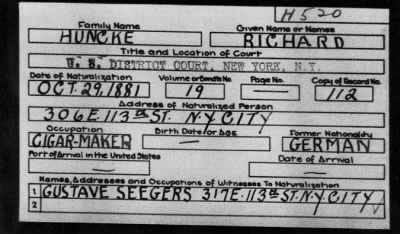 H520
Family Name Given Name or Names
HUNCKE RICHARD
Title and Location of Court
U. S. DISTRICT COURT, NEW YORK, N.Y.
Date of Naturalization Volume or Bundle No. Page No. Copy of Record No.
OCT. 29, 1881 19 — 112
Address of Naturalized Person
306 E. 113th ST. N.Y. CITY
Occupation Birth Date or Age Former Nationality
CIGAR-MAKER — GERMAN
Port of Arrival in the United States Date of Arrival
— —
Names, Addresses and Occupations of Witnesses To Naturalization
1 GUSTAVE SEEGERS 317 E. 113th ST. N.Y. CITY
2